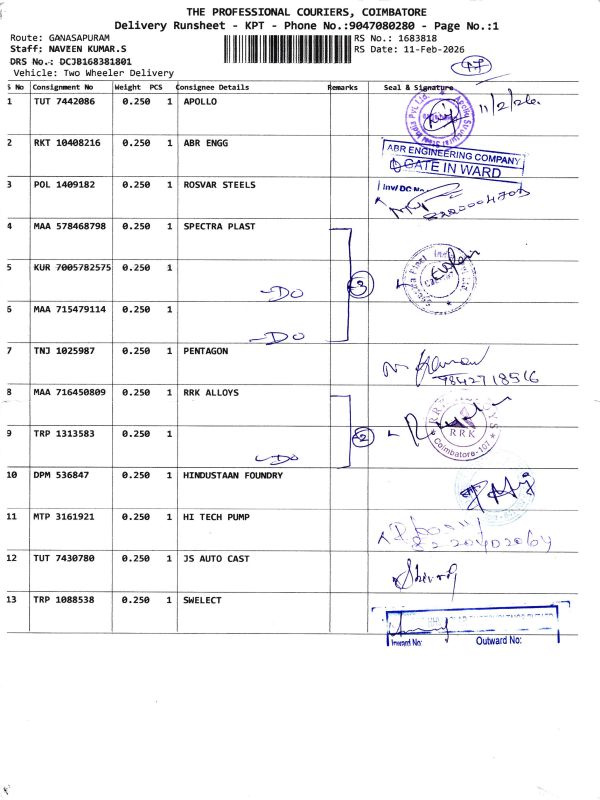 THE PROFESSIONAL COURIERS, COIMBATORE
Delivery Runsheet - KPT - Phone No.:9047080280 - Page No.:1
Route: GANASAPURAM
RS No.: 1683818
Staff: NAVEEN KUMAR.S
RS Date: 11-Feb-2026
DRS No.: DCJB168381801
Vehicle: Two Wheeler Delivery
S No Consignment No Weight PCS Consignee Details Remarks Seal & Signature
1 TUT 7442086 0.250 1 APOLLO 11/2/26
2 RKT 10408216 0.250 1 ABR ENGG
ABR ENGINEERING COMPANY
GATE IN WARD
3 POL 1409182 0.250 1 ROSVAR STEELS
Inw/DC No
4 MAA 578468798 0.250 1 SPECTRA PLAST
5 KUR 7005782575 0.250 1
-DO 3
6 MAA 715479114 0.250 1
-DO
7 TNJ 1025987 0.250 1 PENTAGON
9842718516
8 MAA 716450809 0.250 1 RRK ALLOYS
RRK
Coimbatore-107
9 TRP 1313583 0.250 1
-DO 2
10 DPM 536847 0.250 1 HINDUSTAAN FOUNDRY
11 MTP 3161921 0.250 1 HI TECH PUMP
12 TUT 7430780 0.250 1 JS AUTO CAST
13 TRP 1088538 0.250 1 SWELECT
Inward No: Outward No: